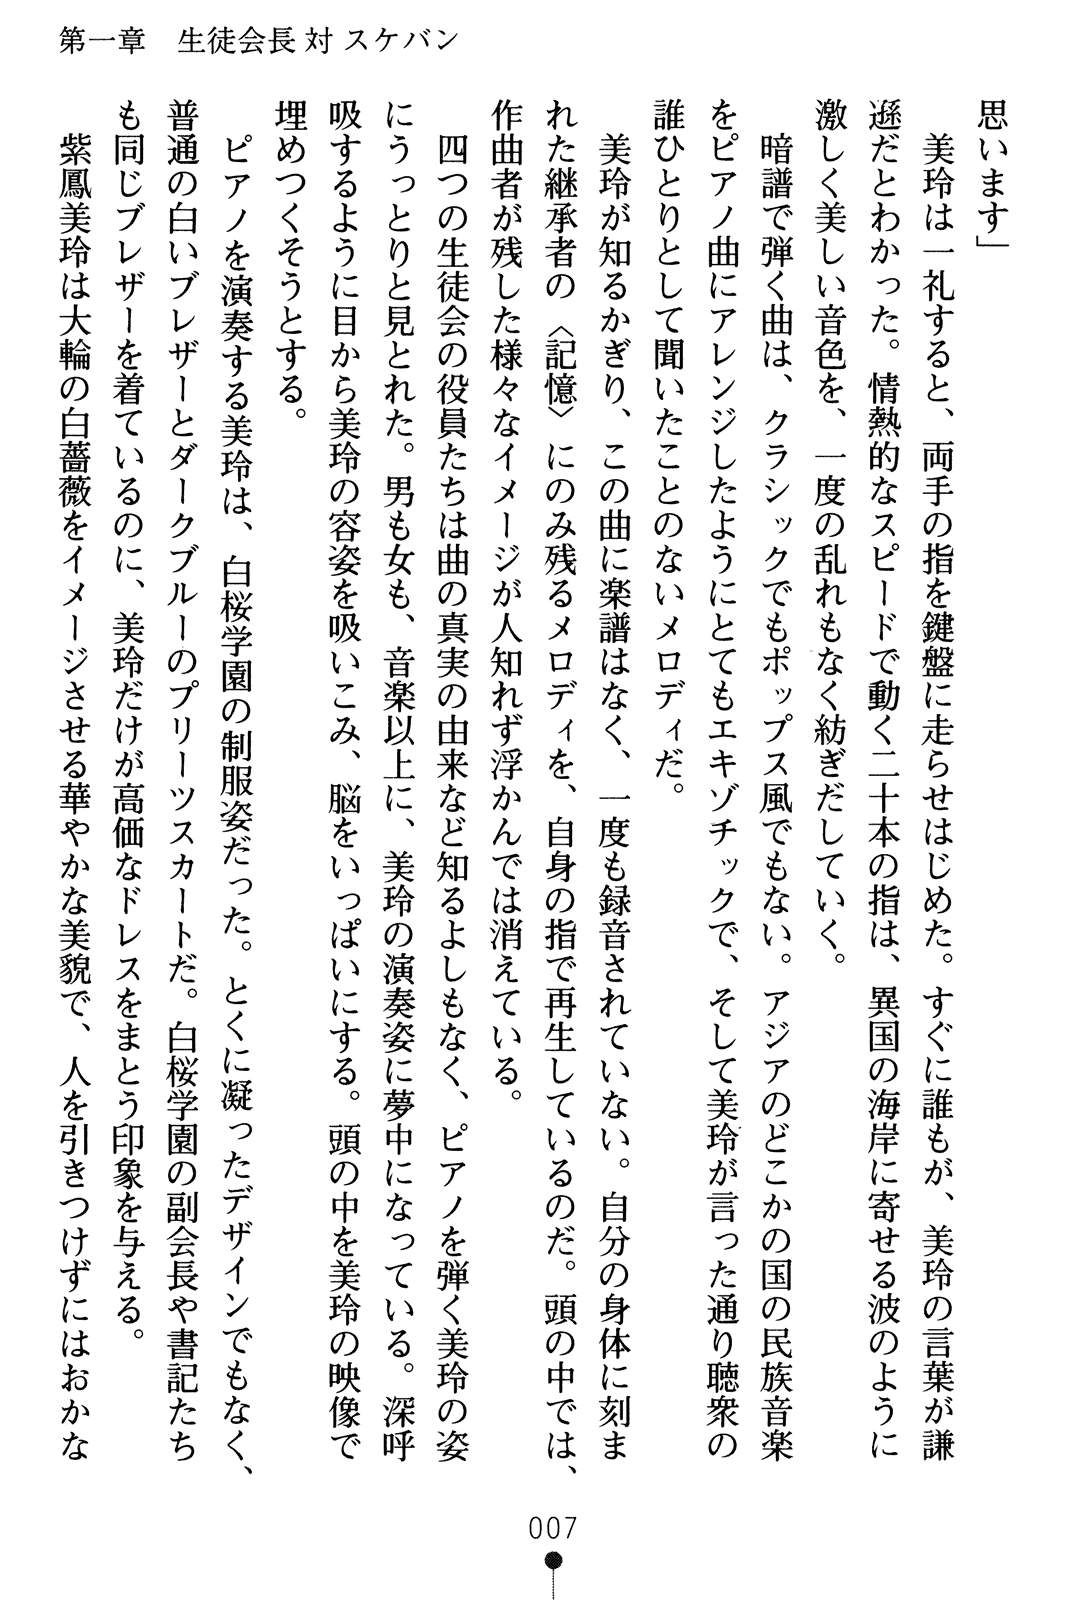 第一章　生徒会長 対 スケバン
思います」
　美玲は一礼すると、両手の指を鍵盤に走らせはじめた。すぐに誰もが、美玲の言葉が謙
遜だとわかった。情熱的なスピードで動く二十本の指は、異国の海岸に寄せる波のように
激しく美しい音色を、一度の乱れもなく紡ぎだしていく。
　暗譜で弾く曲は、クラシックでもポップス風でもない。アジアのどこかの国の民族音楽
をピアノ曲にアレンジしたようにとてもエキゾチックで、そして美玲が言った通り聴衆の
誰ひとりとして聞いたことのないメロディだ。
　美玲が知るかぎり、この曲に楽譜はなく、一度も録音されていない。自分の身体に刻ま
れた継承者の〈記憶〉にのみ残るメロディを、自身の指で再生しているのだ。頭の中では、
作曲者が残した様々なイメージが人知れず浮かんでは消えている。
　四つの生徒会の役員たちは曲の真実の由来など知るよしもなく、ピアノを弾く美玲の姿
にうっとりと見とれた。男も女も、音楽以上に、美玲の演奏姿に夢中になっている。深呼
吸するように目から美玲の容姿を吸いこみ、脳をいっぱいにする。頭の中を美玲の映像で
埋めつくそうとする。
　ピアノを演奏する美玲は、白桜学園の制服姿だった。とくに凝ったデザインでもなく、
普通の白いブレザーとダークブルーのプリーツスカートだ。白桜学園の副会長や書記たち
も同じブレザーを着ているのに、美玲だけが高価なドレスをまとう印象を与える。
　紫鳳美玲は大輪の白薔薇をイメージさせる華やかな美貌で、人を引きつけずにはおかな
007